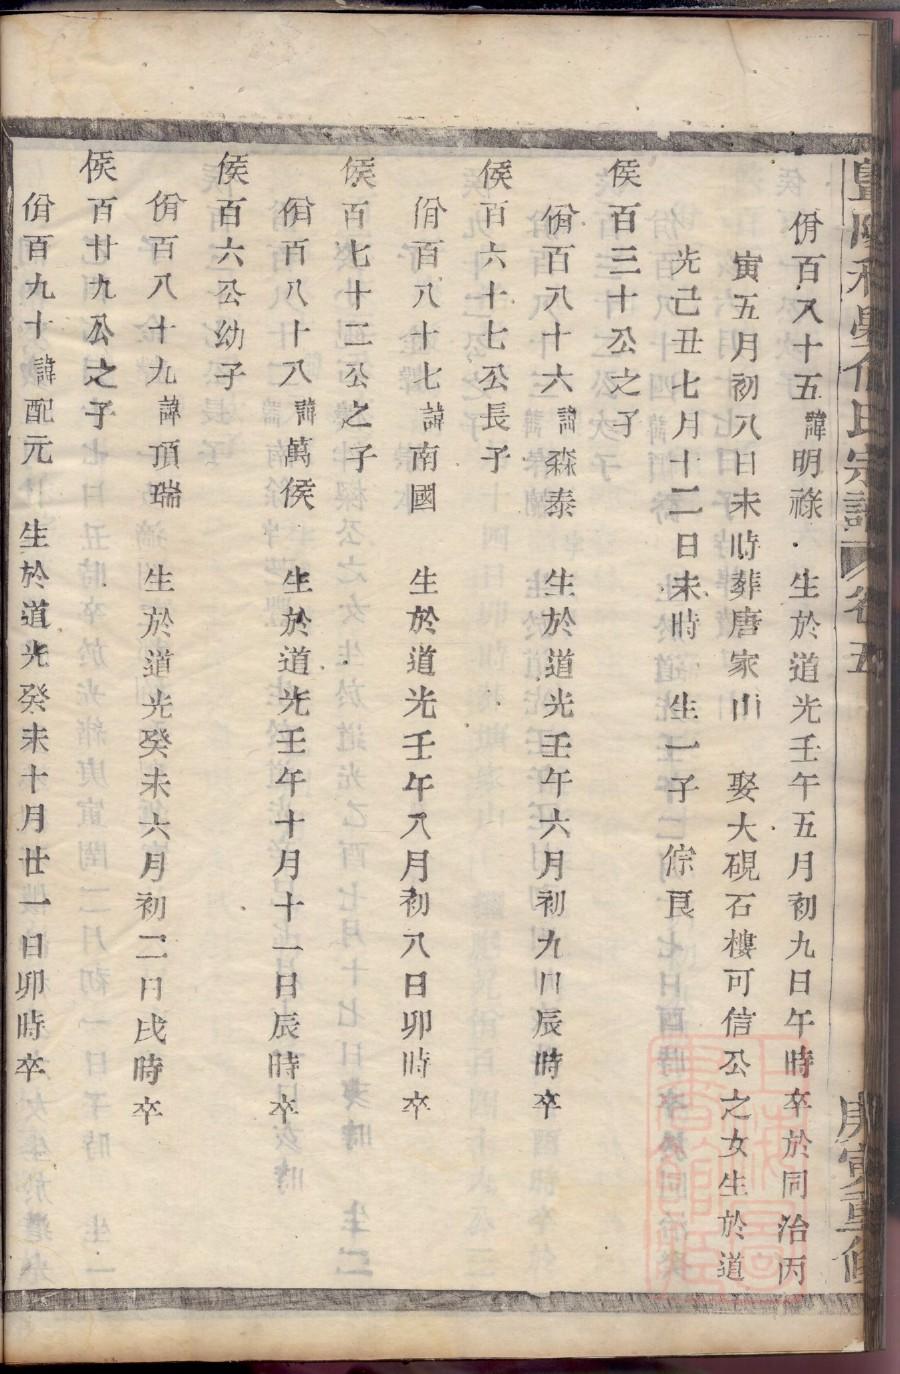 佾百八十五諱明祿 生於道光壬午五月初九日午時卒於同治丙
寅五月初八日未時葬唐家山 娶大硯石樓可信公之女生於道
光己丑七月十二日未時 生一子 倧良
侯百三十公之子
佾百八十六諱森泰 生於道光壬午六月初九日辰時卒
侯百六十七公長子
佾百八十七諱南國 生於道光壬午八月初八日卯時卒
侯百七十二公之子
佾百八十八諱萬侯 生於道光壬午十月十一日辰時卒
侯百六公幼子
佾百八十九諱頂瑞 生於道光癸未六月初二日戌時卒
侯百廿九公之子
佾百九十諱配元 生於道光癸未十月廿一日卯時卒
氏宗譜 卷五 庚寅重修